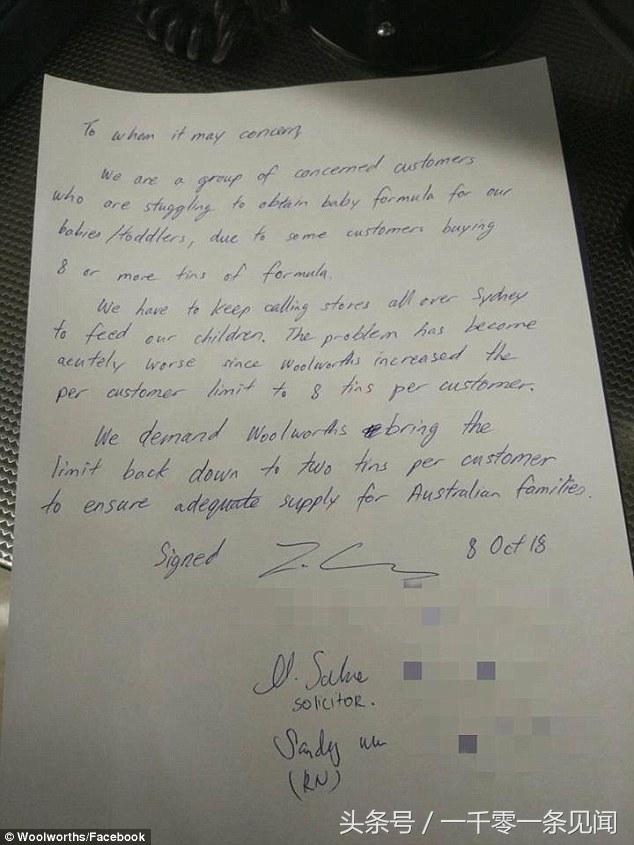 To whom it may concern,
We are a group of concerned customers
who are stuggling to obtain baby formula for our
babies/toddlers, due to some customers buying
8 or more tins of formula.
We have to keep calling stores all over Sydney
to feed our children. The problem has become
acutely worse since Woolworths increased the
per customer limit to 8 tins per customer.
We demand Woolworths bring the
limit back down to two tins per customer
to ensure adequate supply for Australian families.
Signed 8 Oct 18
SOLICITOR.
Sandy
(RN)
头条号 / 一千零一条见闻
© Woolworths/Facebook